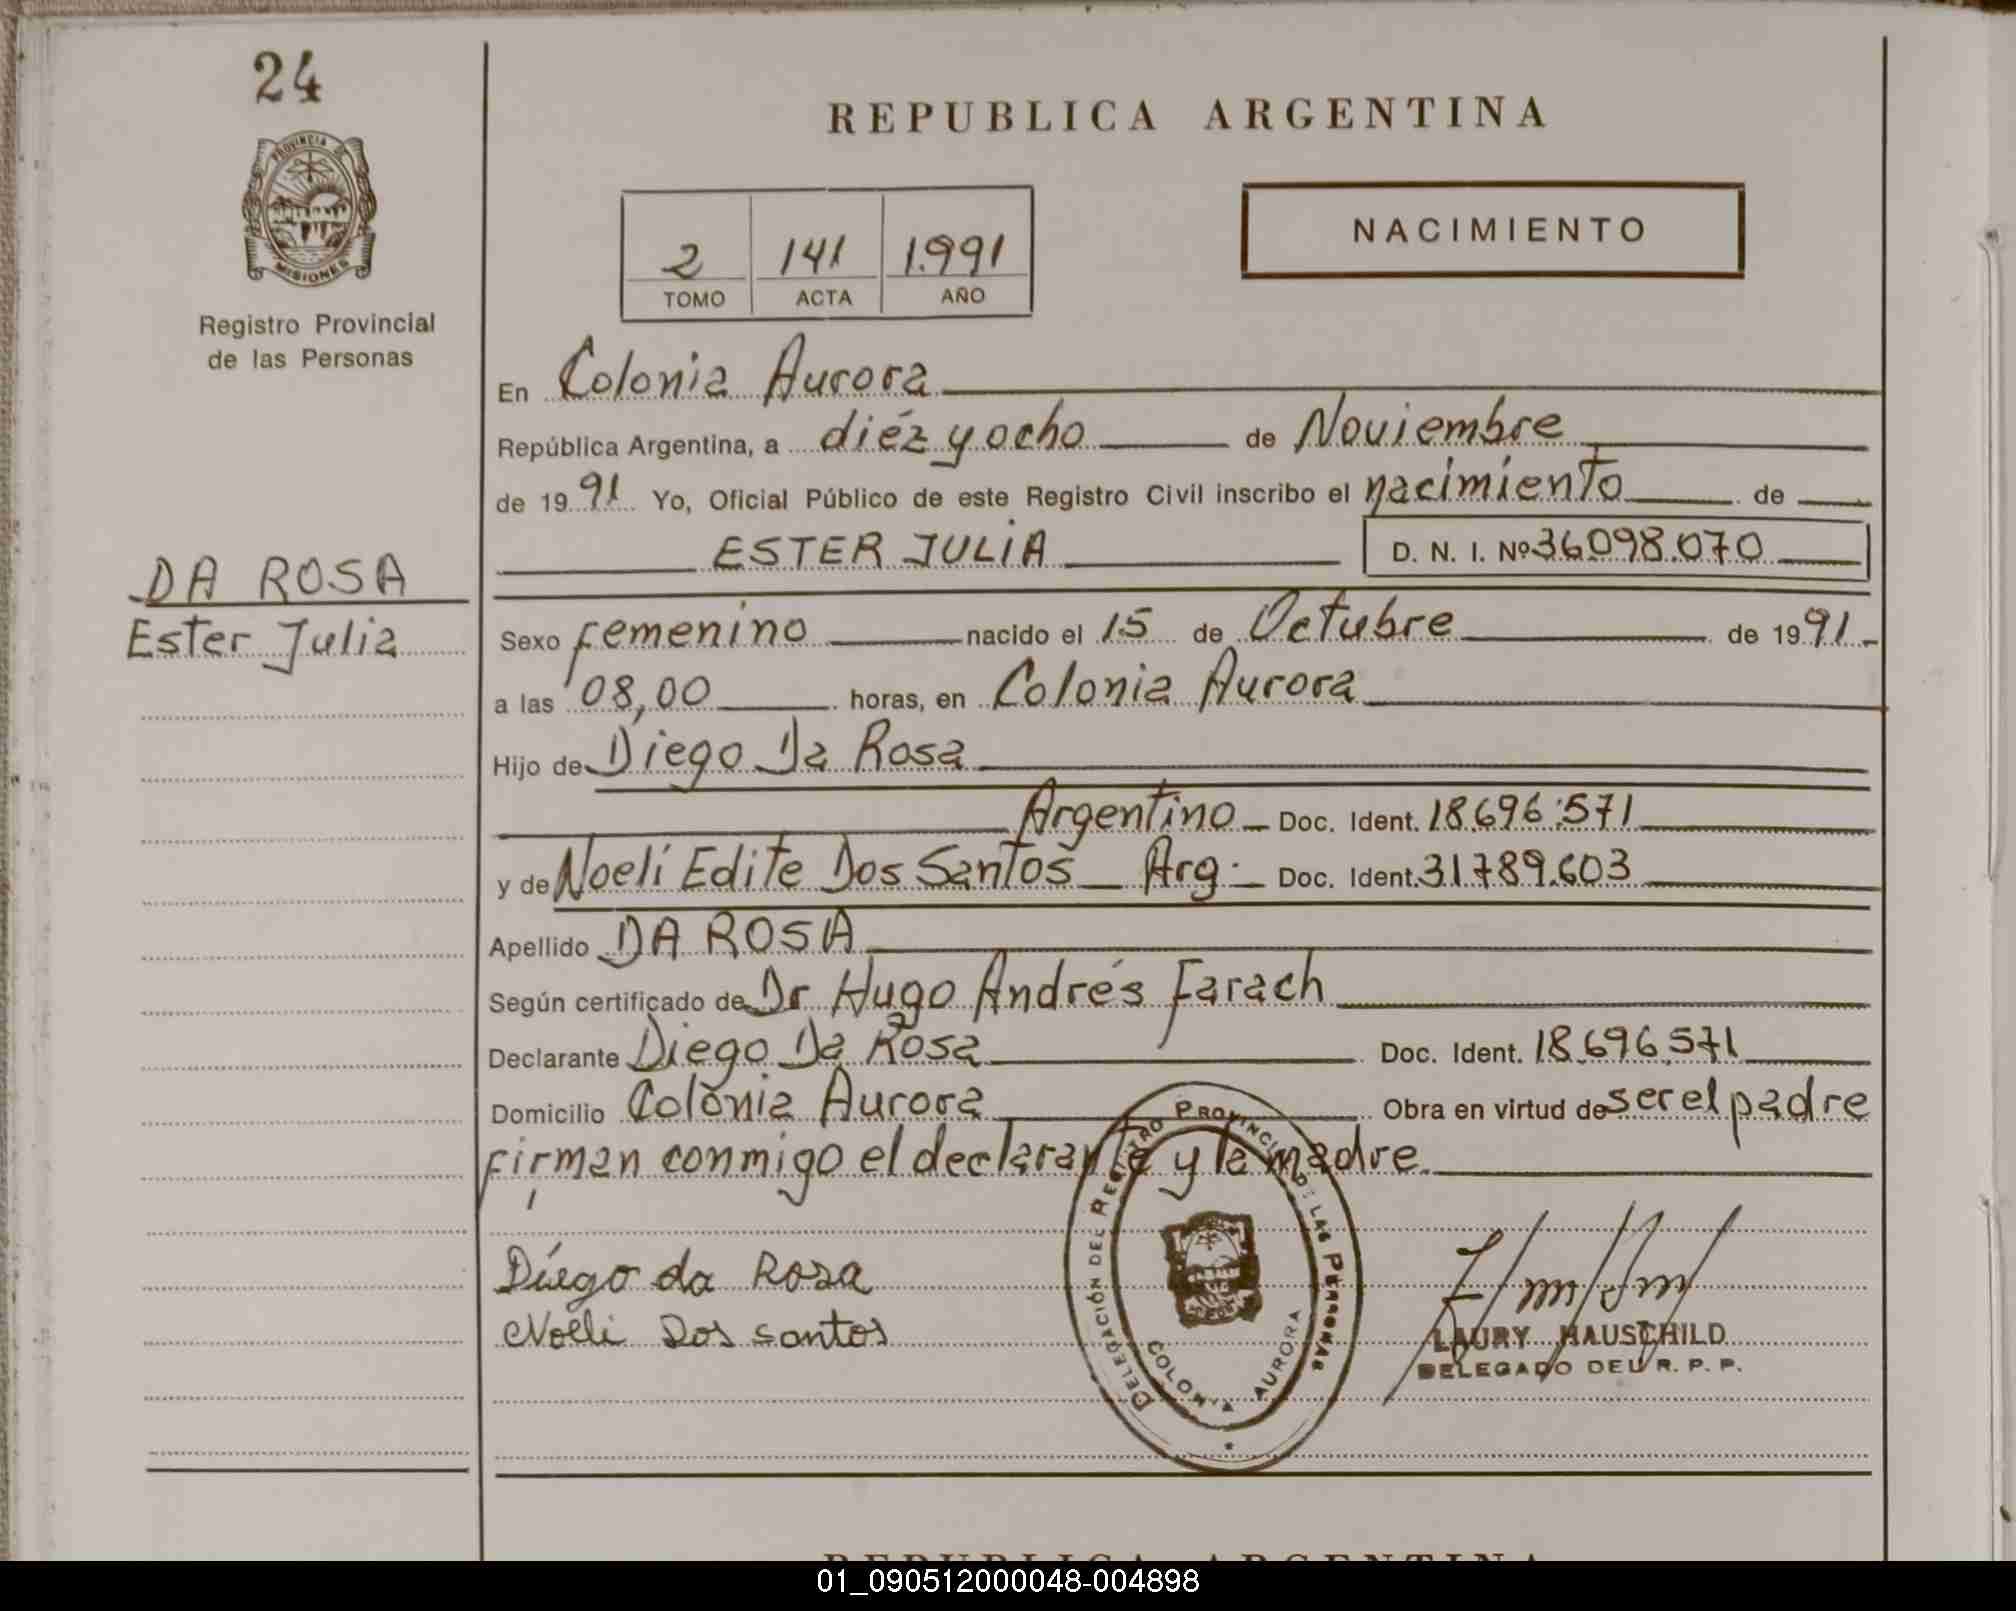 24
PROVINCIA DE
MISIONES
Registro Provincial
de las Personas
DA ROSA
Ester Julia
REPUBLICA ARGENTINA
2 141 1.991
TOMO ACTA AÑO
NACIMIENTO
En Colonia Aurora
República Argentina, a diéz y ocho de Noviembre
de 1991 Yo, Oficial Público de este Registro Civil inscribo el nacimiento de
ESTER JULIA D. N. I. Nº 36.098.070
Sexo femenino nacido el 15 de Octubre de 1991.-
a las 08,00 horas, en Colonia Aurora
Hijo de Diego Da Rosa
Argentino Doc. Ident. 18.696.571
y de Noelí Edite Dos Santos Arg. Doc. Ident. 31.789.603
Apellido DA ROSA
Según certificado de Dr Hugo Andrés Farach
Declarante Diego Da Rosa Doc. Ident. 18.696.571
Domicilio Colonia Aurora Obra en virtud de ser el padre
firman conmigo el declarante y la madre.
DELEGACIÓN DEL REGISTRO PROVINCIAL DE LAS PERSONAS
COLONIA AURORA
Diego da Rosa
Noeli Dos santos
LAURY HAUSCHILD
DELEGADO DEL R. P. P.
REPUBLICA ARGENTINA
01_090512000048-004898